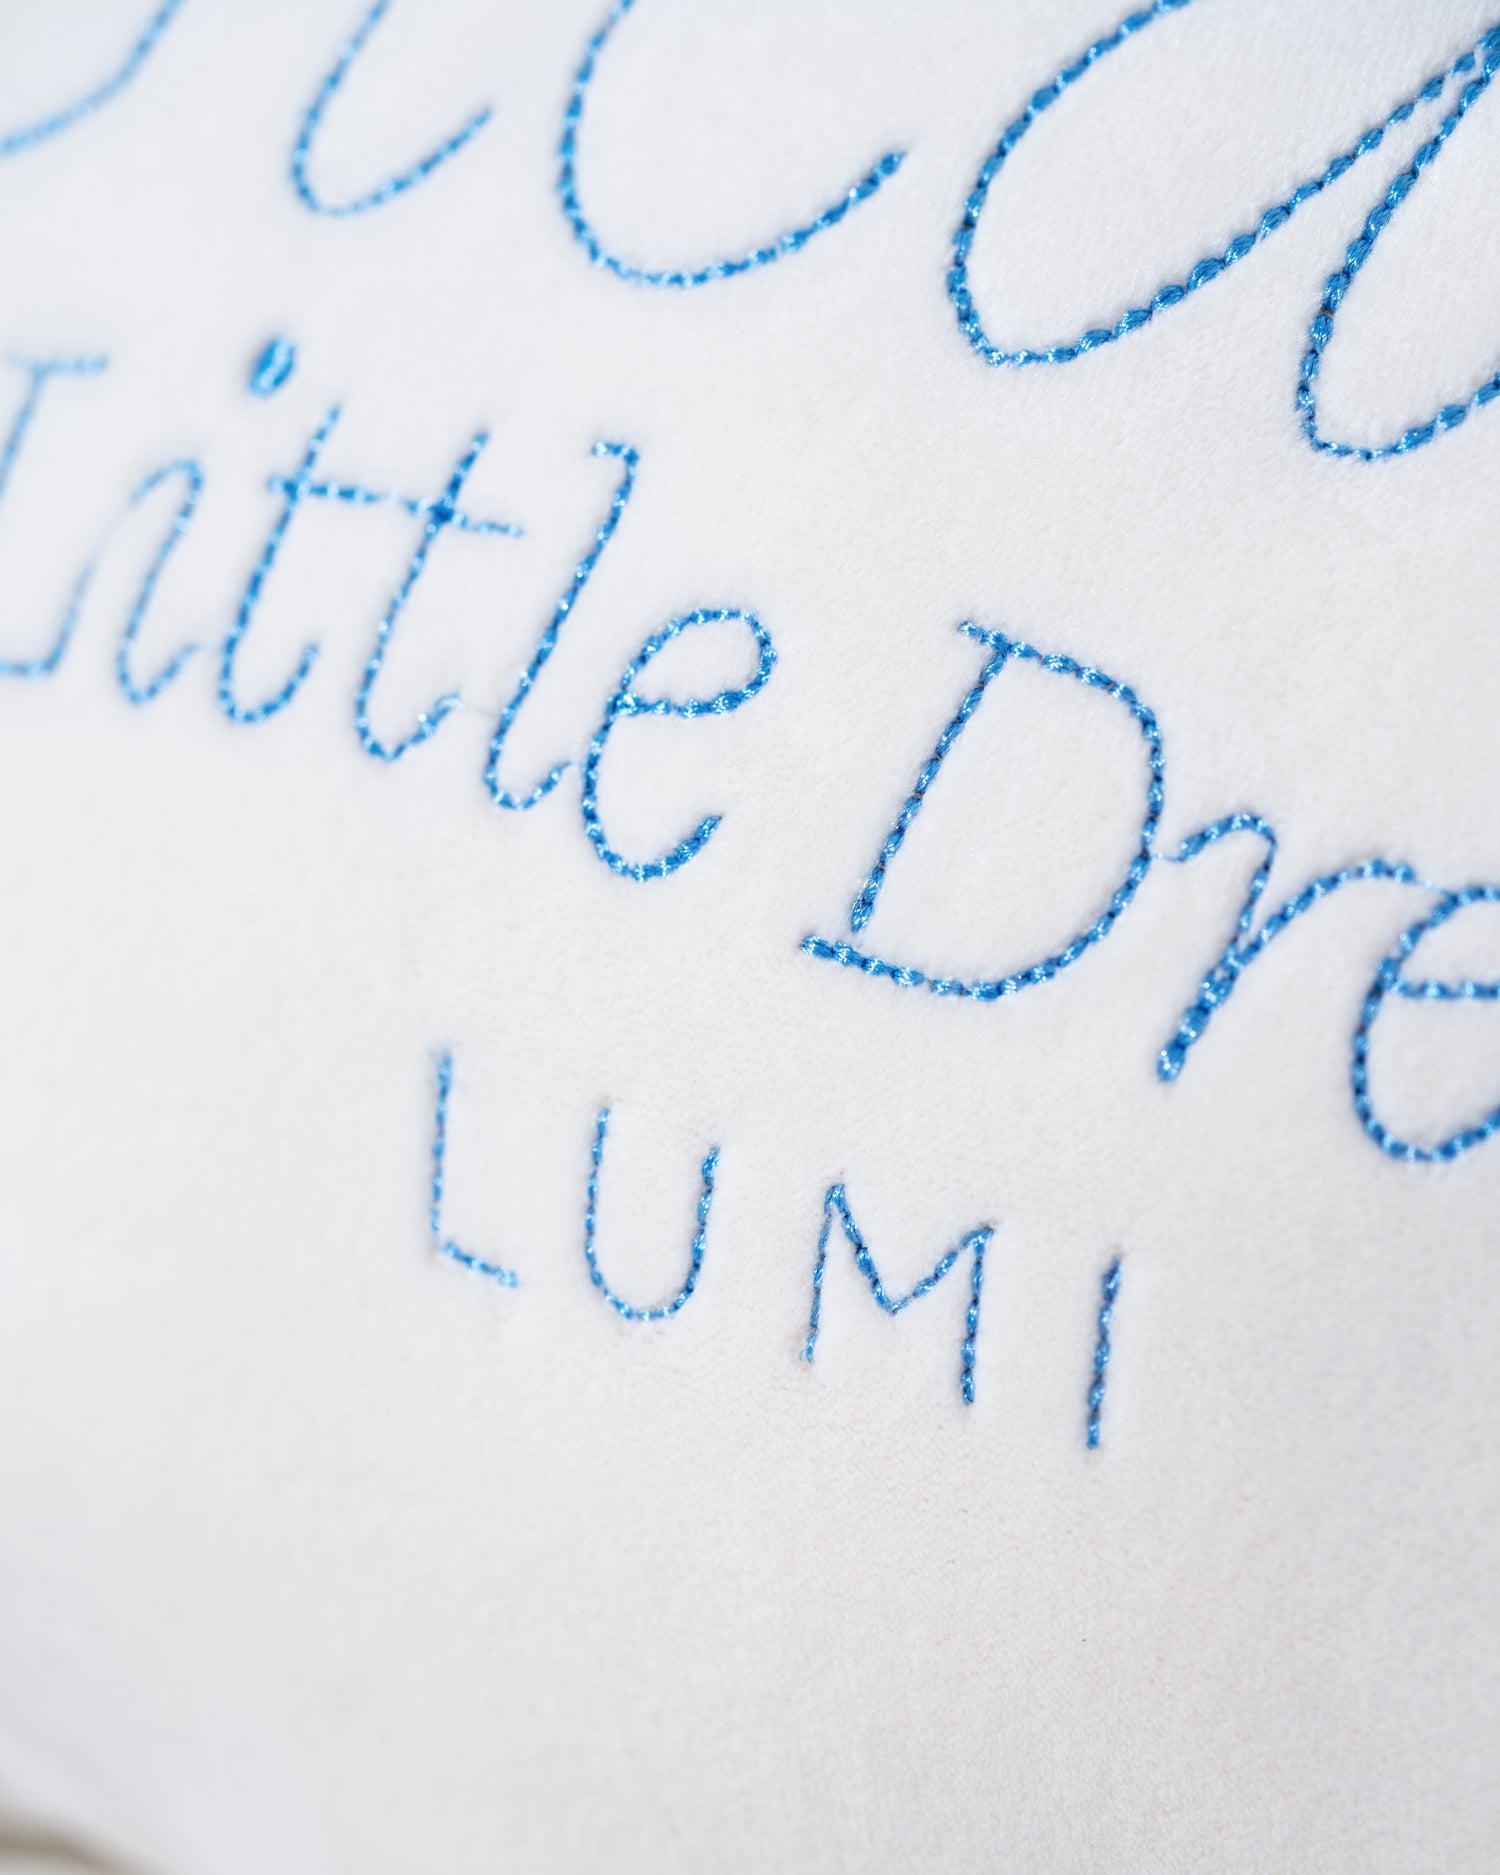 Little Dre
LUMI